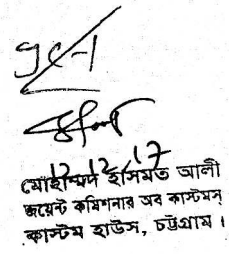 12/12/17
মোহাম্মদ ইসমিত আলী
জয়েন্ট কমিশনার অব কাস্টমস্
কাস্টম হাউস, চট্টগ্রাম ।